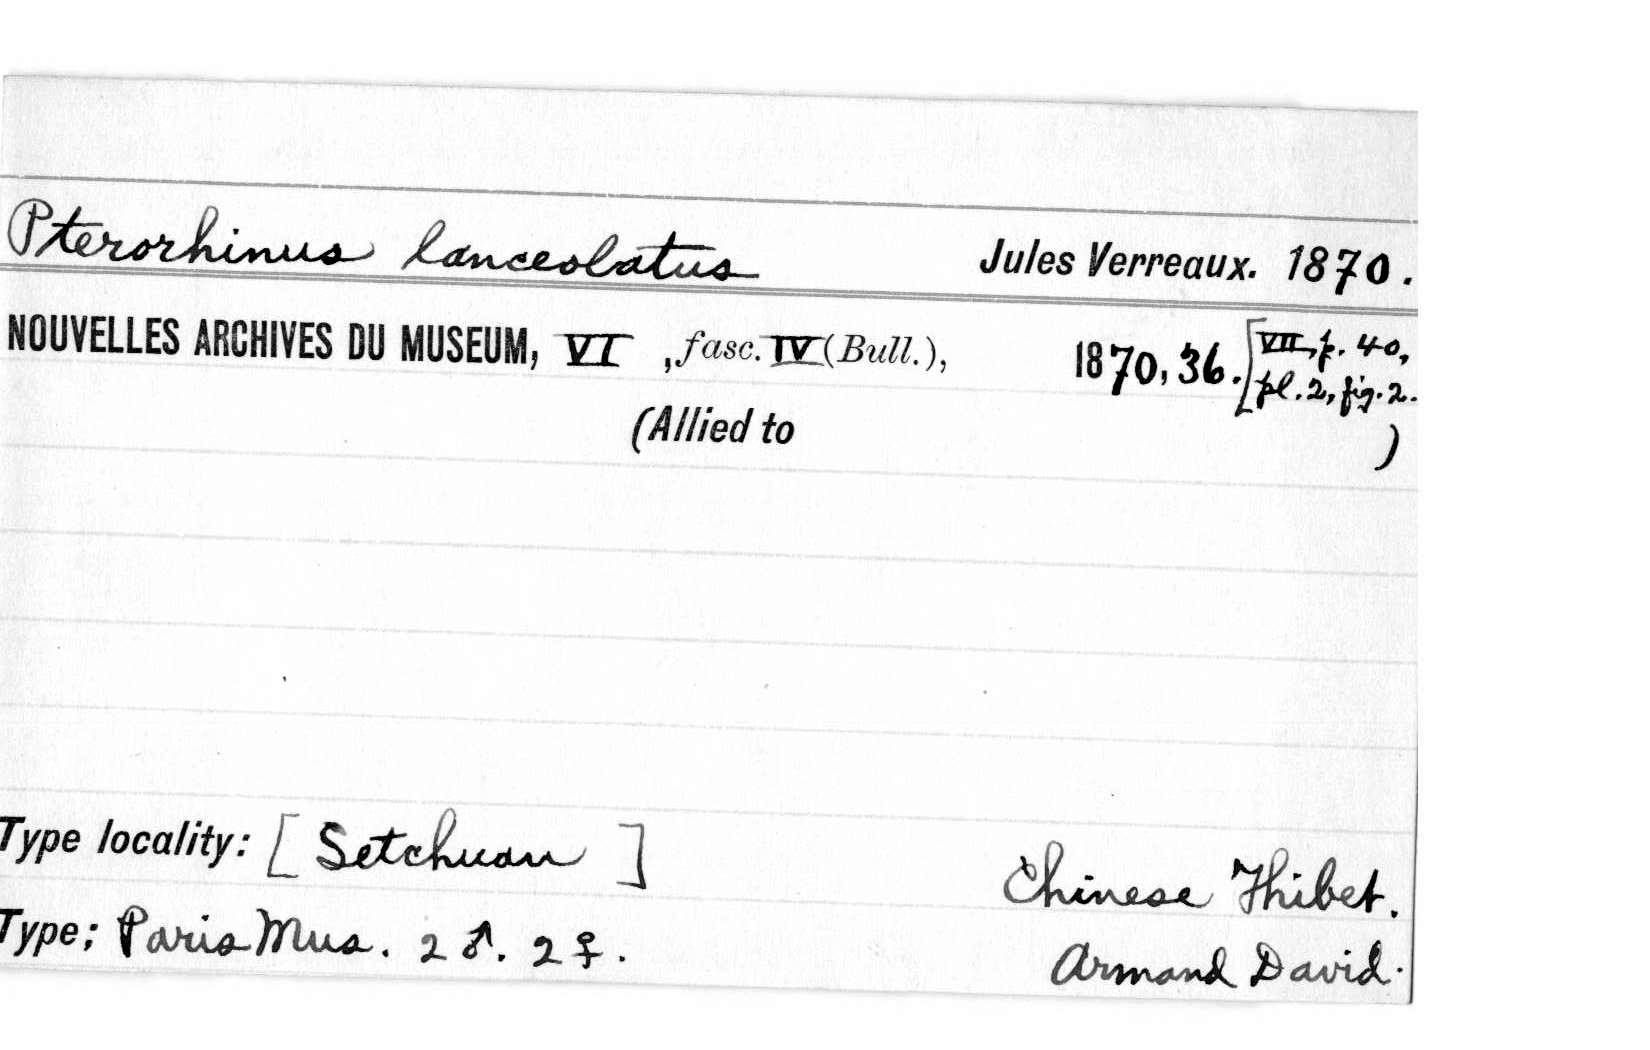 Pterorhinus lanceolatus Jules Verreaux. 1870.
NOUVELLES ARCHIVES DU MUSEUM, VI , fasc. IV (Bull.), 1870, 36. [VII, p. 40,
pl. 2, fig. 2.
(Allied to )
Type locality: [ Setchuan ] Chinese Thibet.
Type; Paris Mus. 2 ♂. 2 ♀. Armand David.